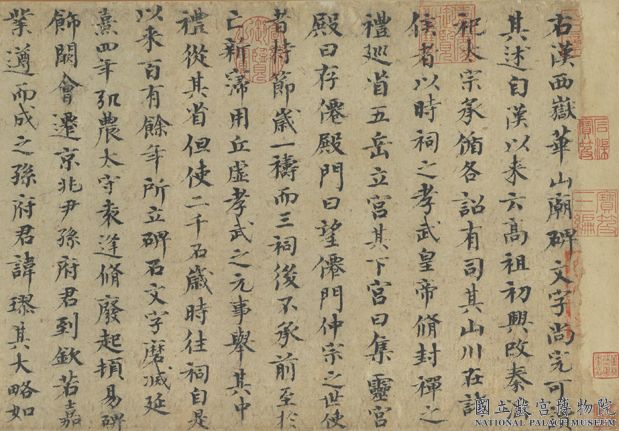 右漢西嶽華山廟碑文字尚完可
其述自漢以来云高祖初興改秦
祀太宗承循各詔有司其山川在諸
侯者以時祠之孝武皇帝脩封禪之
禮巡省五岳立宮其下宮曰集靈宮
殿曰存僊殿門曰望僊門仲宗之世使
者持節歲一禱而三祠後不承前至於
亡新寖用丘虛孝武之元事舉其中
禮從其省但使二千石歲時往祠自是
以来百有餘年所立碑石文字磨滅延
熹四年弘農太守袁逢脩廢起頓易碑
飾闕會遷京兆尹孫府君到欽若嘉
業遵而成之孫府君諱璆其大略如
國立故宮博物院
NATIONAL PALACE MUSEUM